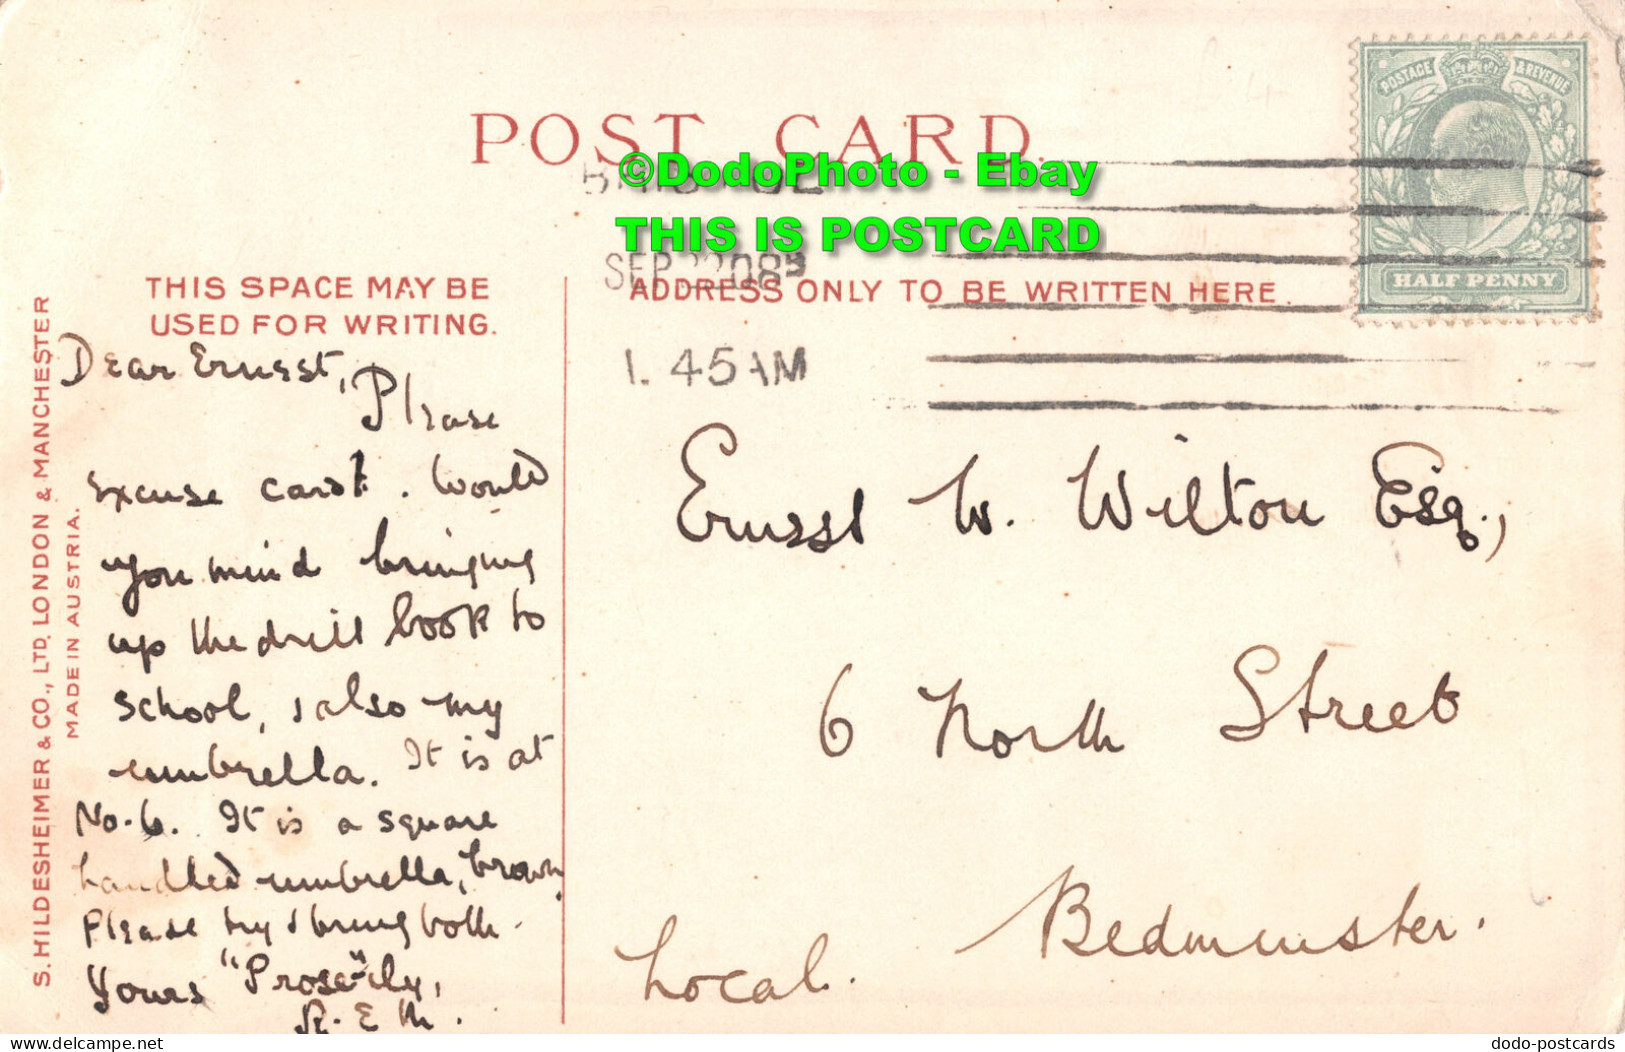 POSTAGE & REVENUE
HALF PENNY
POST CARD.
©DodoPhoto - Ebay
THIS IS POSTCARD
SEP 08
1. 45 AM
THIS SPACE MAY BE
USED FOR WRITING.
ADDRESS ONLY TO BE WRITTEN HERE.
S. HILDESHEIMER & CO., LTD. LONDON & MANCHESTER
MADE IN AUSTRIA.
Dear Ernest,
Please
excuse card. Would
you mind bringing
up the drill book to
school, & also my
umbrella. It is at
No. 6. It is a square
handled umbrella, brown,
Please try & bring both.
Yours "Prose"-ily,
R. E. M.
Ernest W. Wilton Esq.,
6 North Street
Bedminster.
Local.
delcampe.net
dodo-postcards